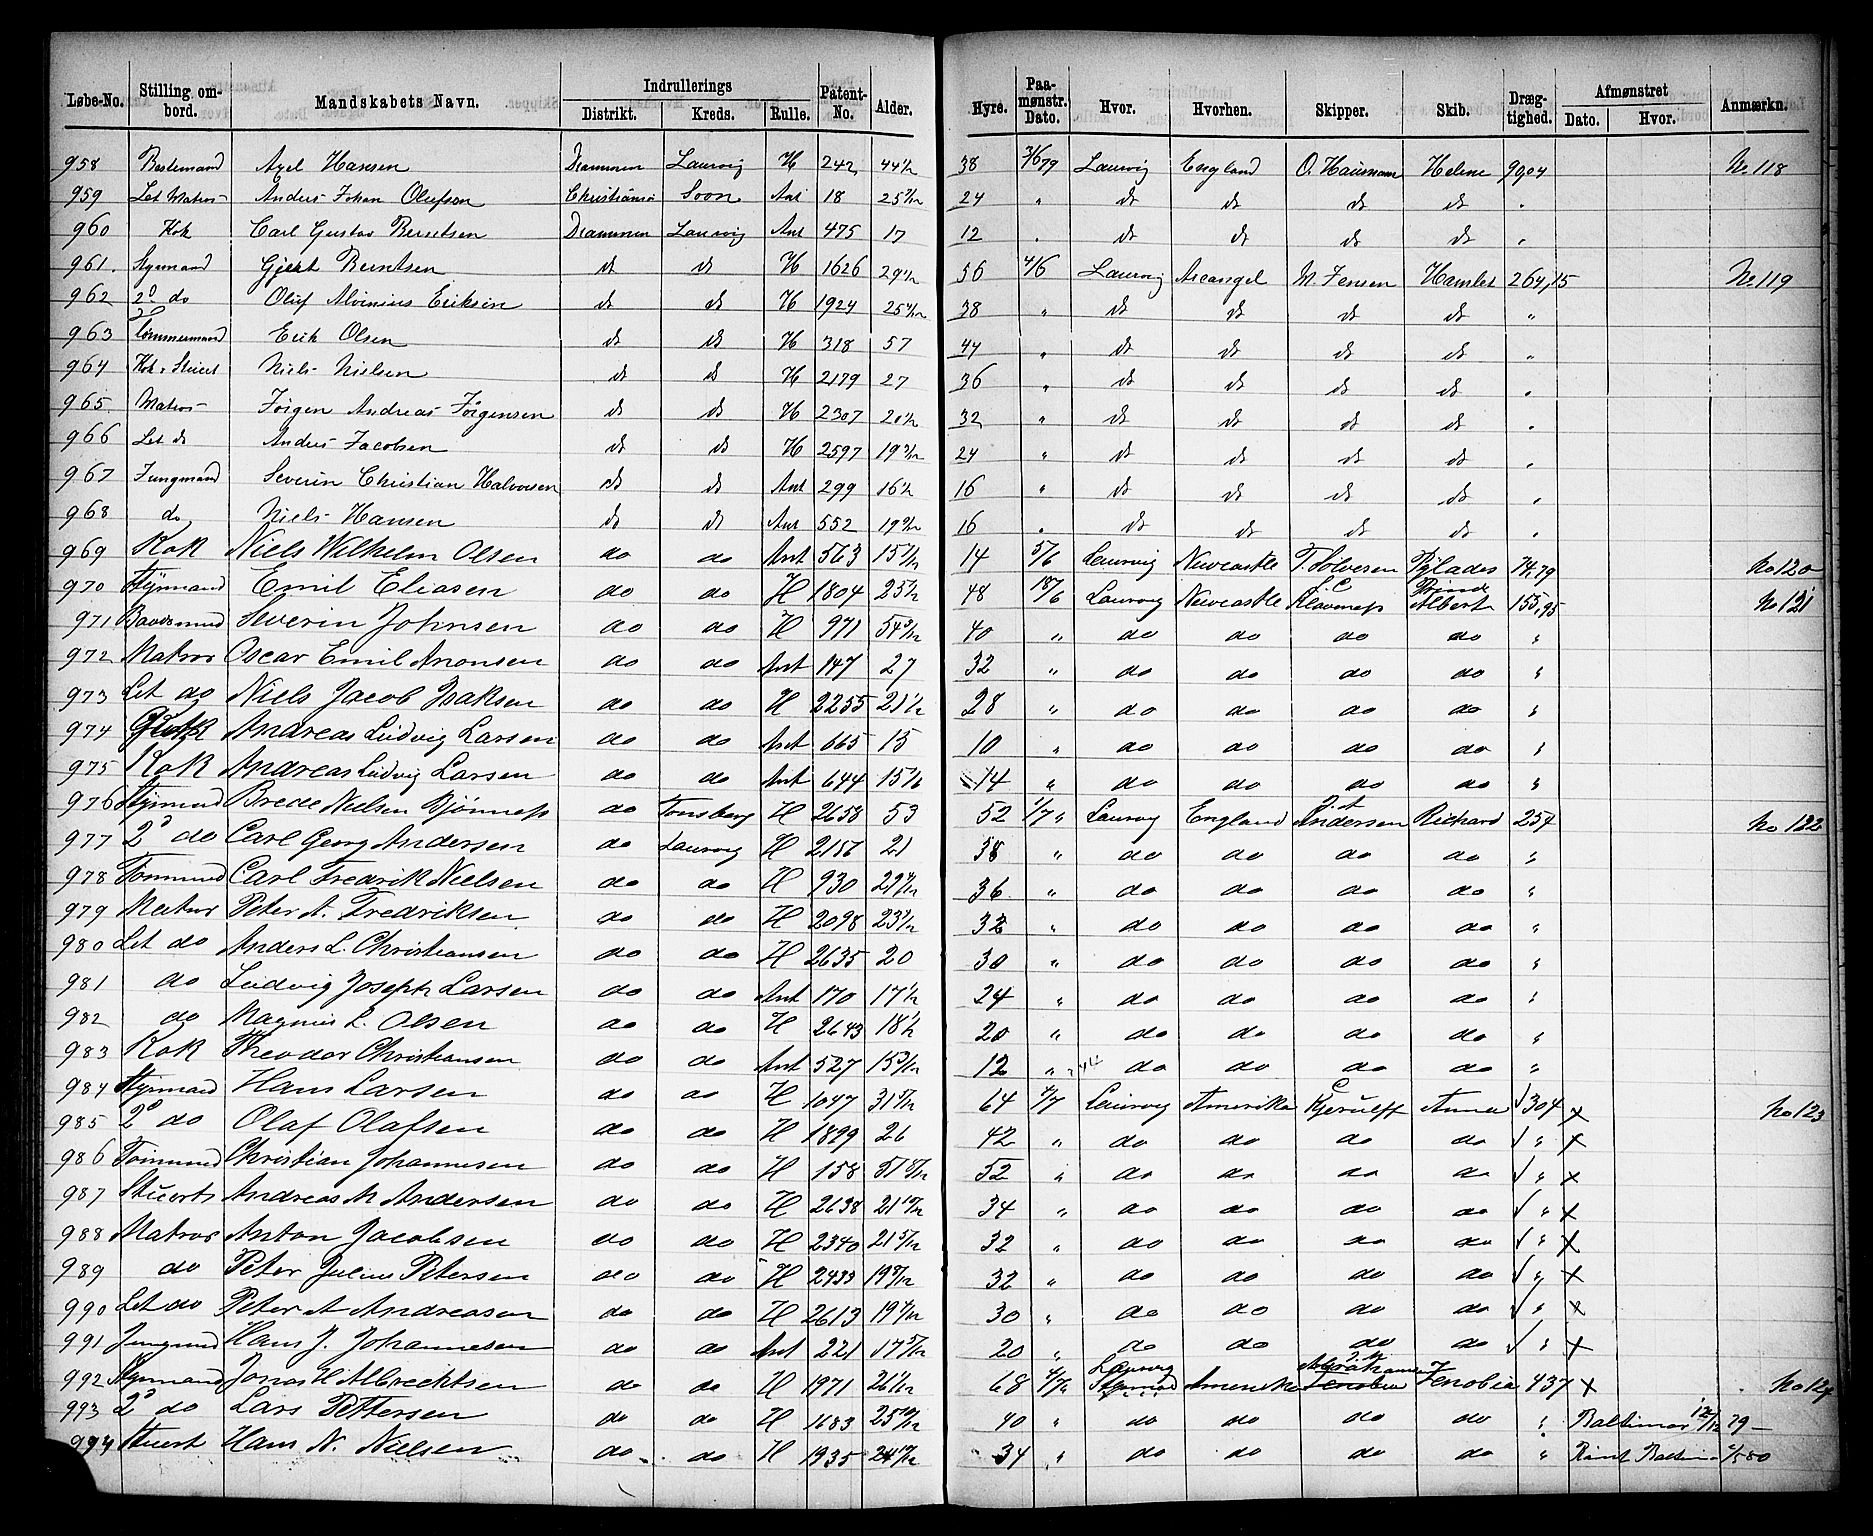 Løbe-No. Stilling ombord. Mandskabets Navn. Indrullerings Distrikt. Kreds. Rulle. Patent-No. Alder. Hyre. Paamønstr. Dato. Hvor. Hvorhen. Skipper. Skib. Drægtighed. Afmønstret Dato. Hvor. Anmærkn.
958 Bestemand Axel Hansen Drammen Laurvig H 242 38 3/6 79 Laurvig England O. Helene No 118
959 Let Matros Anders Johan Olufsen Soon Ant 18 24 " do do do do "
960 Kok Carl Gustav Berntsen Drammen Laurvig Ant 475 17 12 " do do do do "
961. Styrmand Gjert Berntsen do do H 1626 56 4/6 Laurvig Arcangel M. Jensen Hamlet 264,15 No 119
962 2d do Oluf Eriksen do do H 1924 38 " do do do do "
963 Tømmermand Erik Olsen do do H 318 57 44 " do do do do "
964 Kok & Stuert Niels Nielsen do do H 2179 27 36 " do do do do "
965 Matros Jörgen Andreas Jörgensen do do H 2307 32 " do do do do "
966 Let do Anders Jacobsen do do H 2597 24 " do do do do "
967 Jungmand Severin Christian Halvorsen do do Ant 299 16 " do do do do "
968 do Niels Hansen do do Ant 552 16 " do do do do "
969 Kok Niels Wilhelm Olsen do do Ant 563 14 5/6 Laurvig Newcastle T. Solversen Pylades 74,79 No 120
970 Styrmand Emil Eliasen do do H 1804 48 18/6 Laurvig Newcastle L C Klavenæss Prinds Albert 155,95 No 121
971 Baadsmand Severin Johnsen do do H 971 40 " do do do do "
972 Matros Oscar Emil Aronsen do do Ant 147 27 32 " do do do do "
973 Let do Niels Jacob Isaksen do do H 2255 28 " do do do do "
974 Andreas Ludvig Larsen do do Ant 665 15 10 " do do do do "
975 Kok Andreas Ludvig Larsen do do Ant 644 14 " do do do do "
976 Styrmand Brede Nielsen Bjönness do Tonsberg H 2658 53 52 1/7 " Laurvig England Andersen Richard 254 No 122
977 2d do Carl Georg Andersen do Laurvig H 21 38 " do do do do "
978 Tömmmd Carl Fredrik Nielsen do do H 930 36 " do do do do "
979 Matros Peter A. Fredriksen do do H 2098 32 " do do do do "
980 Let do Anders L. Christiansen do do H 2635 20 30 " do do do do "
981 do Ludvig Joseph Larsen do do Ant 170 24 " do do do do "
982 do Magnus L. Olsen do do H 2643 20 " do do do do "
983 Kok Theodor Christiansen do do Ant 527 12 " do do do do "
984 Styrmand Hans Larsen do do H 1047 64 4/7 Laurvig Amerika Kjerulff Anna √ 304 x No 123
985 2d do Olaf Olafsen do do H 1899 26 42 " do do do do √ " x
986 Tömmmd Christian Johannesen do do H 158 52 " do do do do √ " x
987 Stuert Andreas M Andersen do do H 2638 21 10/12 34 " do do do do √ " x
988 Matros Anton Jacobsen do do H 2340 21 5/12 32 " do do do do √ " x
989 do Peter Julius Petersen do do H 2433 32 " do do do do √ " x
990 Let do Peter A Andreasen do do H 2613 30 " do do do do √ " x
991 Jungmand Hans J. Johannesen do do Ant 221 20 " do do do do √ " x
992 Styrmand Jonas H Albrechtsen do do H 1971 68 4/7 Laurvig Amerika Abrahamsen Zenobia 437 x No 124
993 2d do Lars Pettersen do do H 1683 25 10/12 40 " do do do do " Baltimor 12/12 79
994 Stuert Hans N. Nielsen do do H 1935 34 " do do do do "